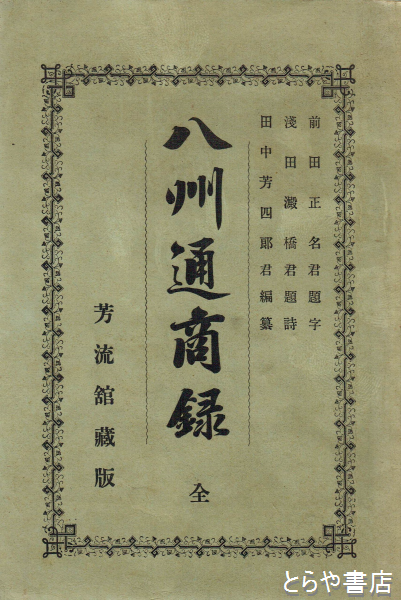 前田正名君題字
淺田澱橋君題詩
田中芳四郎君編纂
八州通商録
全
芳流舘藏版
とらや書店